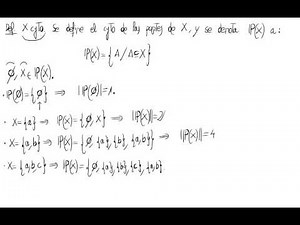 Def X cjto, se define el cjto de las partes de X, y se denota P(X) a:
P(X) = {A / A⊆X}
∅, X ∈ P(X).
· P(∅) = {∅} ⇒ |P(∅)| = 1.
· X = {a} ⇒ P(X) = {∅, X} ⇒ |P(X)| = 2
· X = {a, b} ⇒ P(X) = {∅, {a}, {b}, {a,b}} ⇒ |P(X)| = 4
· X = {a, b, c} ⇒ P(X) = {∅, {a}, {b}, {c}, {a,b}